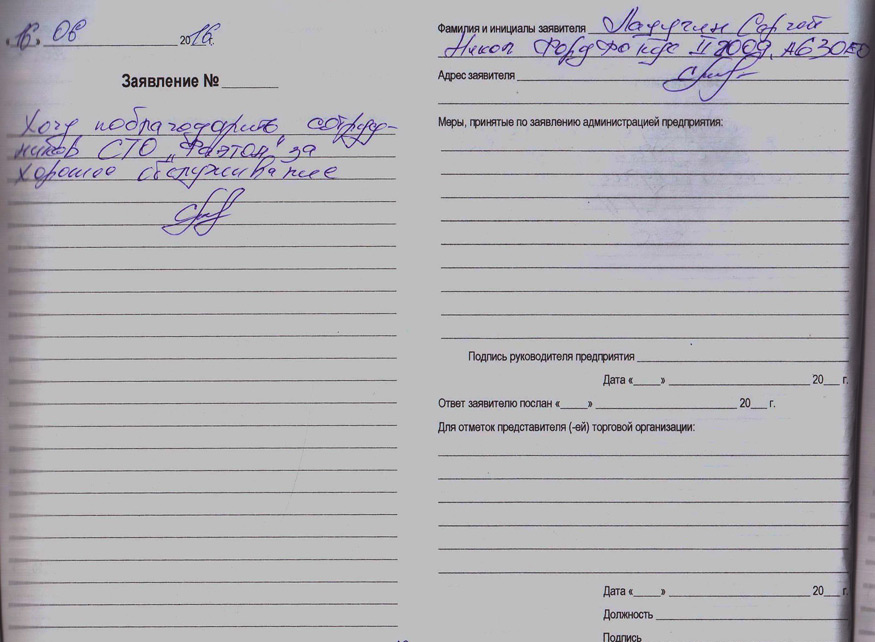 16. 06 2016
Заявление № ______
Хочу поблагодарить сотруд-
ников СТО „Фаэтон" за
хорошое обслуживание
Фамилия и инициалы заявителя Сергей
Никол Форд II 2009. А630ЕО
Адрес заявителя
Меры, принятые по заявлению администрацией предприятия:
Подпись руководителя предприятия
Дата «_____» ____________ 20___ г.
Ответ заявителю послан «_____» ____________ 20___ г.
Для отметок представителя (-ей) торговой организации:
Дата «_____» ____________ 20___ г.
Должность
Подпись